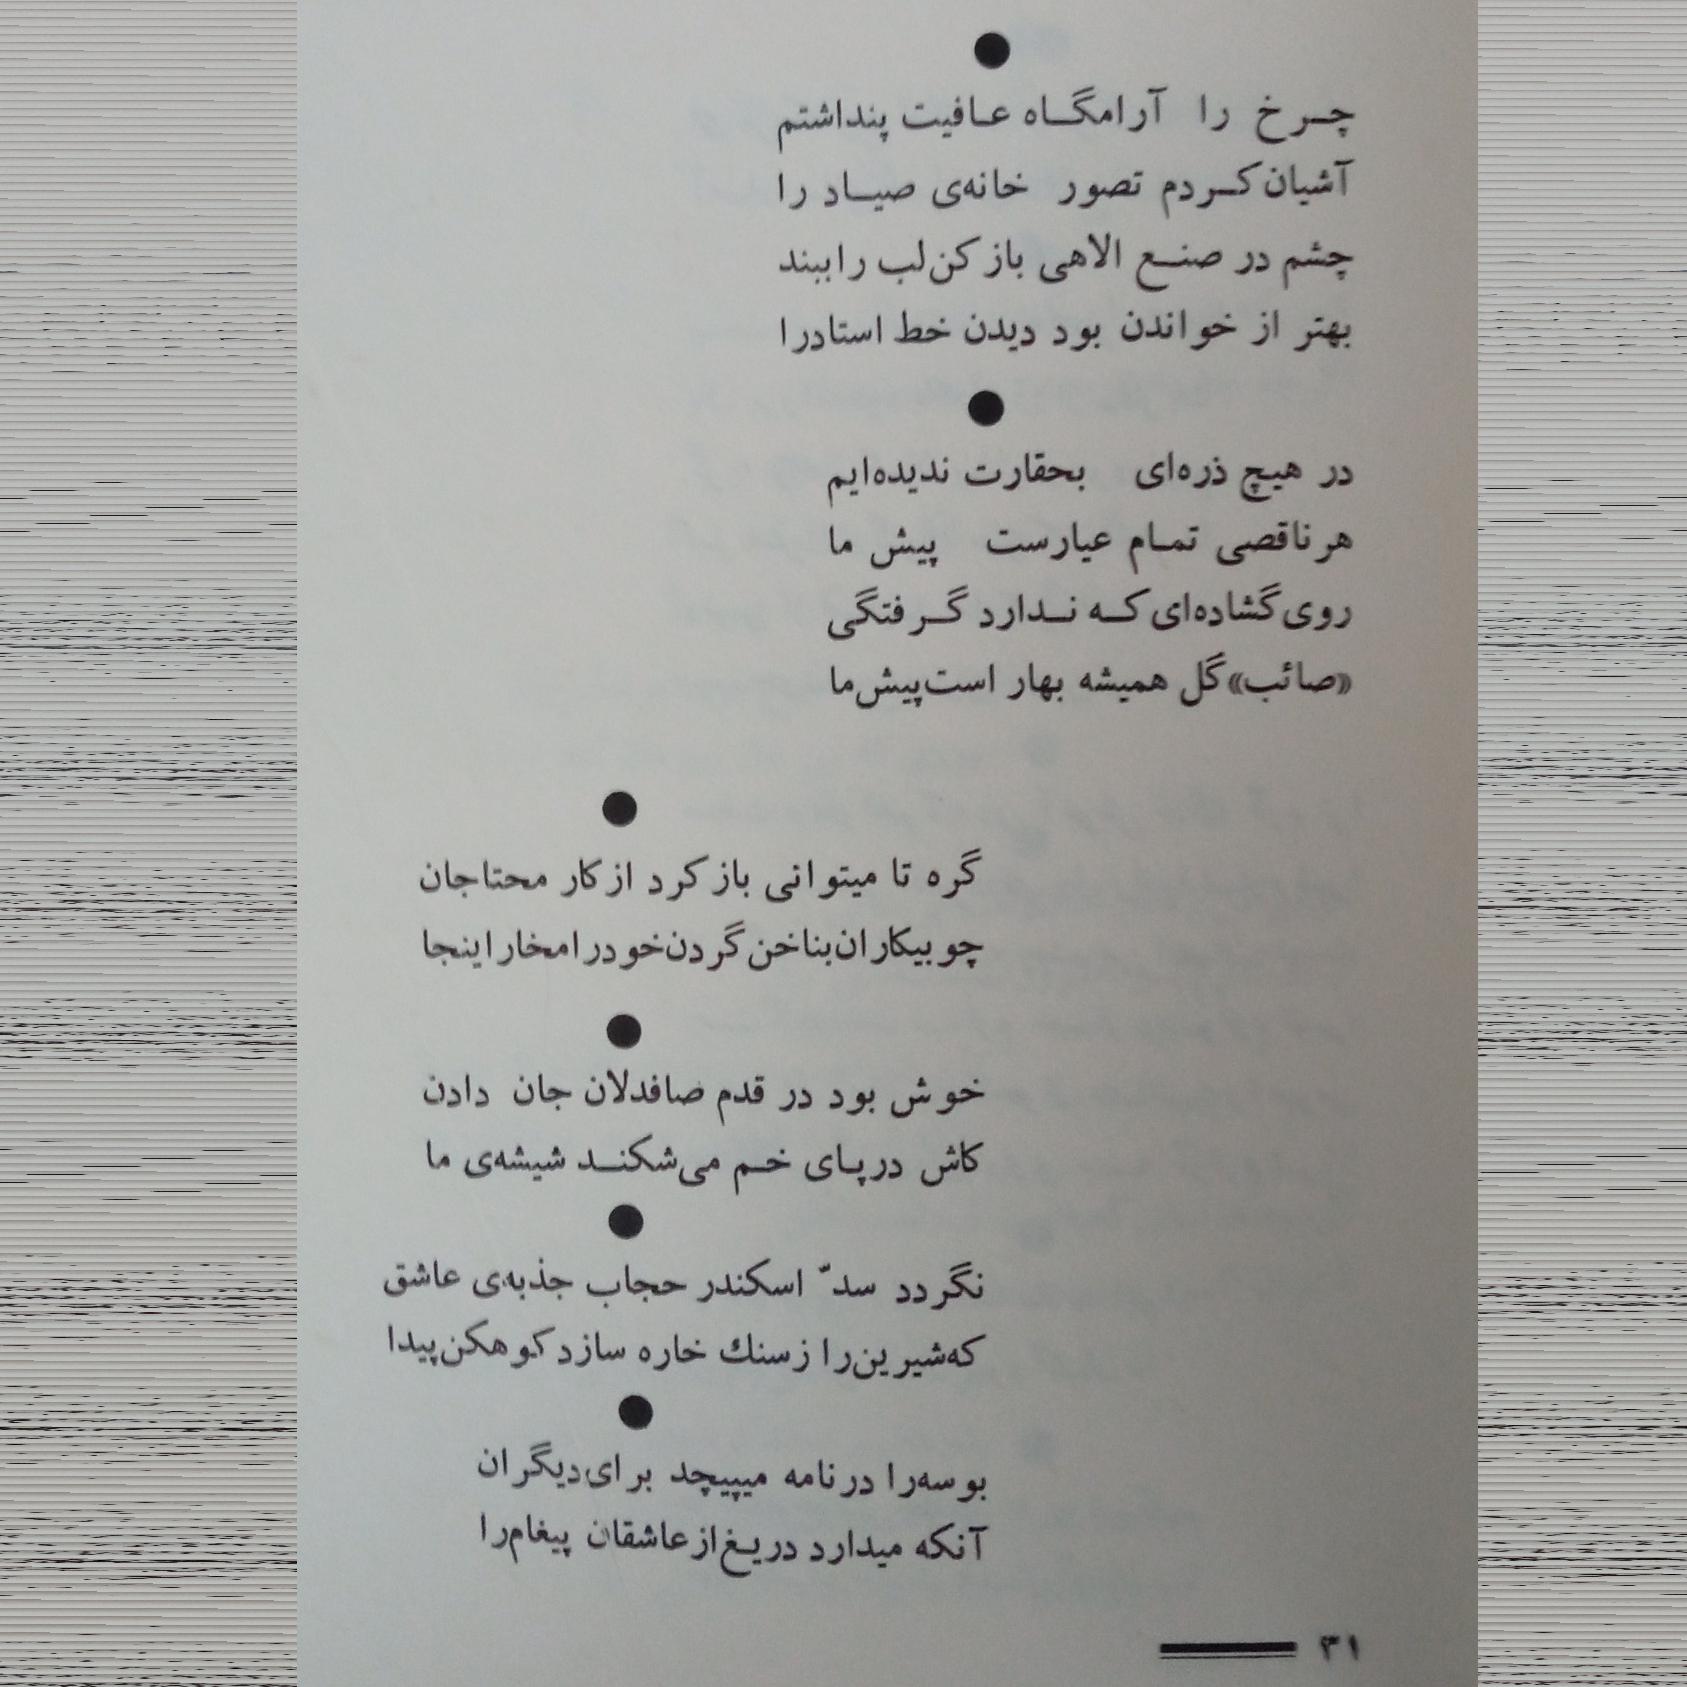 چرخ را آرامگاه عافیت پنداشتم
آشیان کردم تصور خانه‌ی صیاد را
چشم در صنع الاهی باز کن لب را ببند
بهتر از خواندن بود دیدن خط استاد را
در هیچ ذره‌ای بحقارت ندیده‌ایم
هر ناقصی تمام عیارست پیش ما
روی گشاده‌ای که ندارد گرفتگی
«صائب» گل همیشه بهار است پیش ما
گره تا میتوانی باز کرد از کار محتاجان
چو بیکاران بناخن گردن خود را مخار اینجا
خوش بود در قدم صافدلان جان دادن
کاش در پای خم می‌شکند شیشه‌ی ما
نگردد سدّ اسکندر حجاب جذبه‌ی عاشق
که شیرین را ز سنك خاره سازد کوهکن پیدا
بوسه را در نامه میپیچد برای دیگران
آنکه میدارد دریغ از عاشقان پیغام را
۳۱